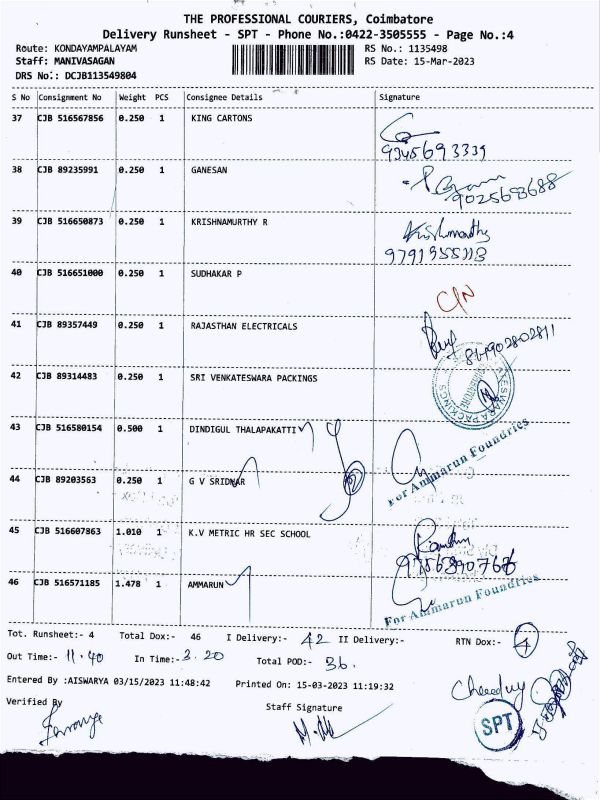 THE PROFESSIONAL COURIERS, Coimbatore
Delivery Runsheet - SPT - Phone No.:0422-3505555 - Page No.:4
Route: KONDAYAMPALAYAM RS No.: 1135498
Staff: MANIVASAGAN RS Date: 15-Mar-2023
DRS No.: DCJB113549804
S No Consignment No Weight PCS Consignee Details Signature
37 CJB 516567856 0.250 1 KING CARTONS
9345693339
38 CJB 89235991 0.250 1 GANESAN
9025693688
39 CJB 516650873 0.250 1 KRISHNAMURTHY R Krishnamurthy
9791355113
40 CJB 516651000 0.250 1 SUDHAKAR P
C/N
41 CJB 89357449 0.250 1 RAJASTHAN ELECTRICALS
42 CJB 89314483 0.250 1 SRI VENKATESWARA PACKINGS
43 CJB 516580154 0.500 1 DINDIGUL THALAPAKATTI
For Ammarun Foundries
44 CJB 89203563 0.250 1 G V SRIDHAR
45 CJB 516607863 1.010 1 K.V METRIC HR SEC SCHOOL
46 CJB 516571185 1.478 1 AMMARUN
For Ammarun Foundries
Tot. Runsheet:- 4 Total Dox:- 46 I Delivery:- 42 II Delivery:- RTN Dox:- 4
Out Time:- 11.40 In Time:- 3.20 Total POD:- 36.
Entered By :AISWARYA 03/15/2023 11:48:42 Printed On: 15-03-2023 11:19:32
Verified By Staff Signature
SPT